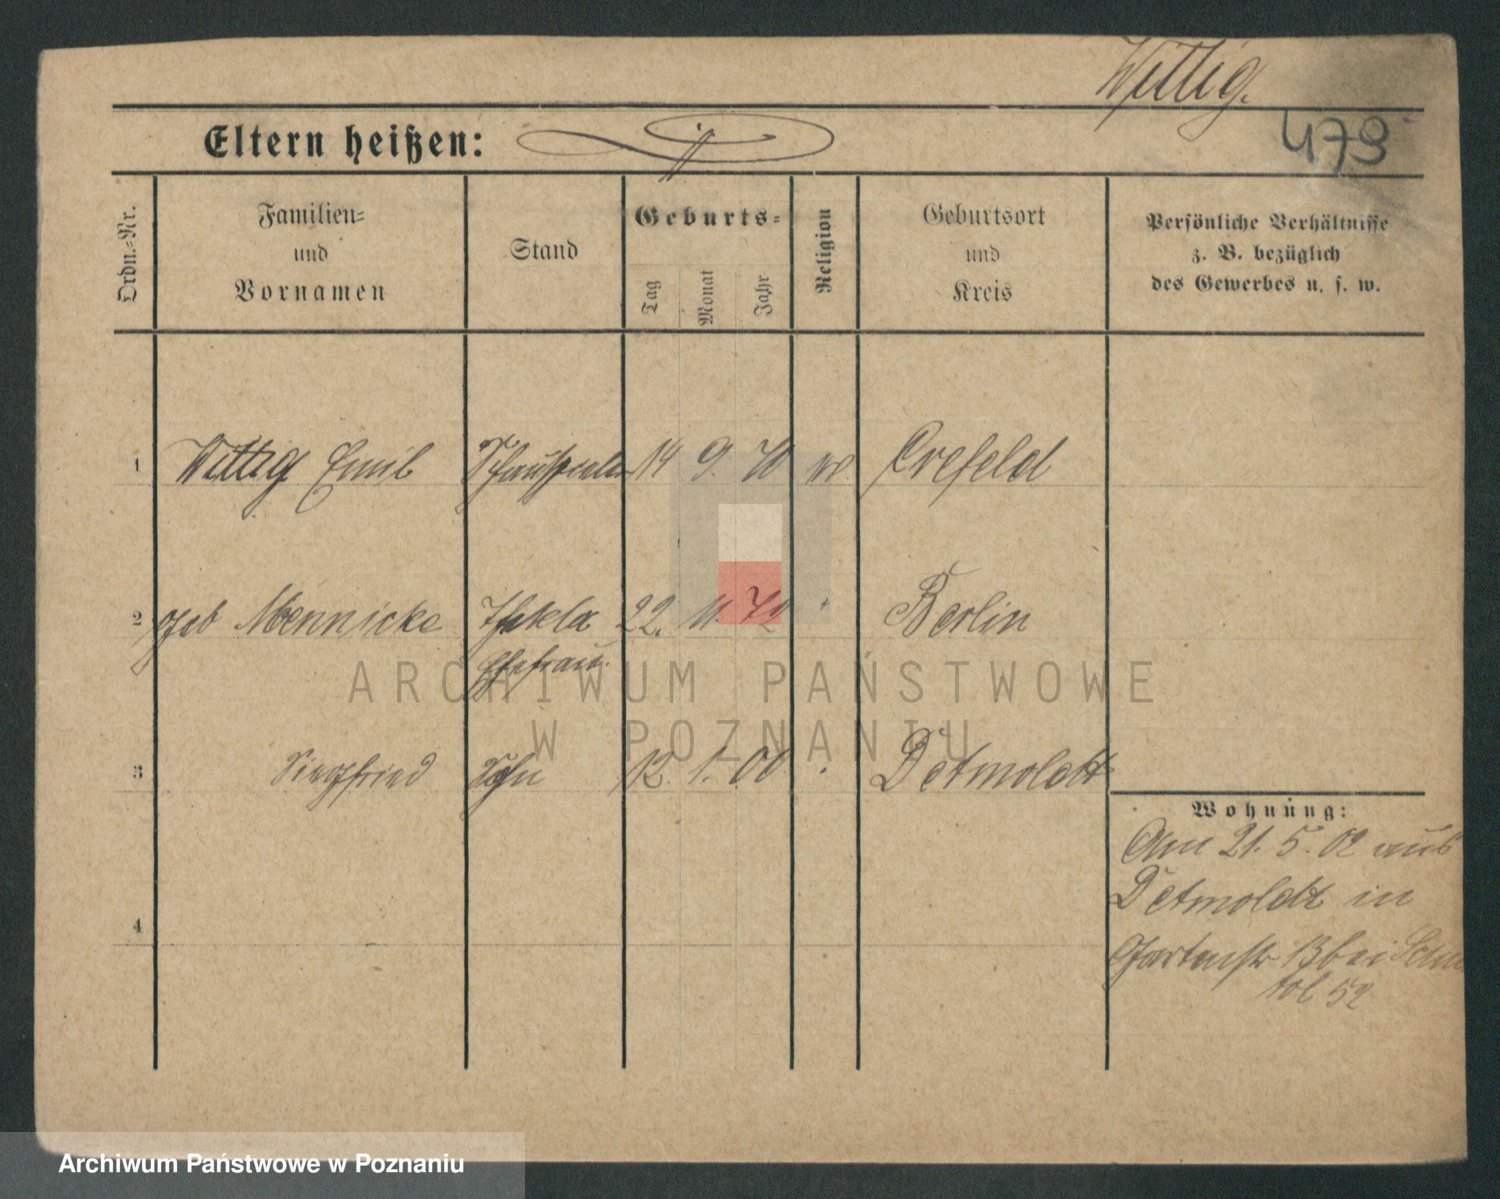 Wittig.
479
Eltern heißen:
Ordn.=Nr.
Familien=
und
Vornamen
Stand
Geburts=
Tag
Monat
Jahr
Religion
Geburtsort
und
Kreis
Persönliche Verhältnisse
z. B. bezüglich
des Gewerbes u. s. w.
1 Wittig Emil Schauspieler 14 9. 70 Crefeld
2 geb Mennicke Thekla 22. 11. 72 " Berlin
Ehefrau.
3 Siegfried Sohn 12. 1. 00 " Detmoldt
4
Wohnung:
Am 21. 5. 02 aus
Detmoldt in
Gartenstr 13 bei
52
ARCHIWUM PAŃSTWOWE
W POZNANIU
Archiwum Państwowe w Poznaniu